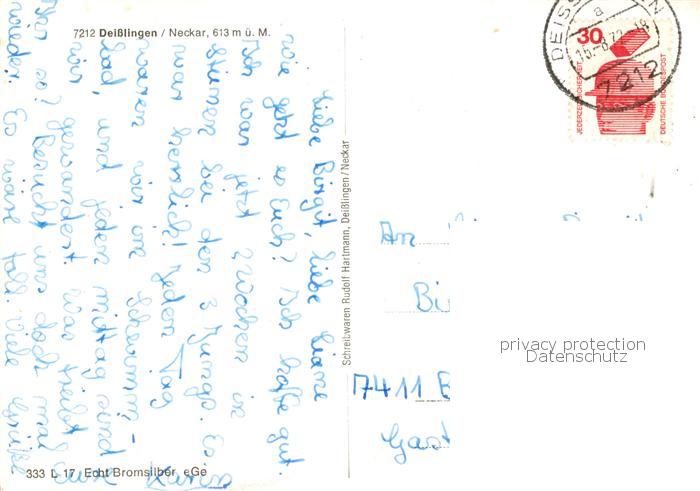 7212 Deißlingen / Neckar, 613 m ü. M.
Liebe Birgit, liebe Liane
wie geht es Euch? Ich hoffe gut.
Ich war jetzt 2 Wochen in
bei den 3 Jungs. Es
war herrlich! Jeden Tag
waren wir im Schwimm-
bad, und jeden mittag sind
wir gewandert. Was treibt
Ihr so? Besucht uns doch mal
wieder. Es wäre toll. Viele Grüße
Schreibwaren Rudolf Hartmann, Deißlingen/Neckar
333 L 17 Echt Bromsilber eGe
30
JEDERZEIT SICHERHEIT
DEUTSCHE BUNDESPOST
a
7212
An
Bi
7411
Gast
privacy protection
Datenschutz